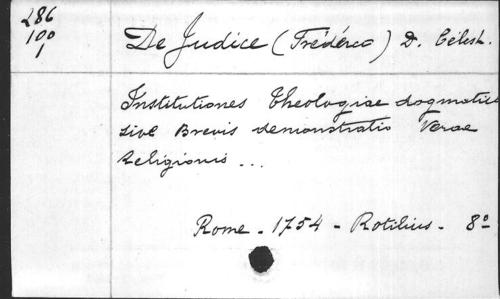 286
100
1
De Judice (Frédéric) D. Célest.
Institutiones Theologiae dogmaticae
sive Brevis demonstratio Verae
Religionis ...
Rome - 1754 - Rotilius - 8º